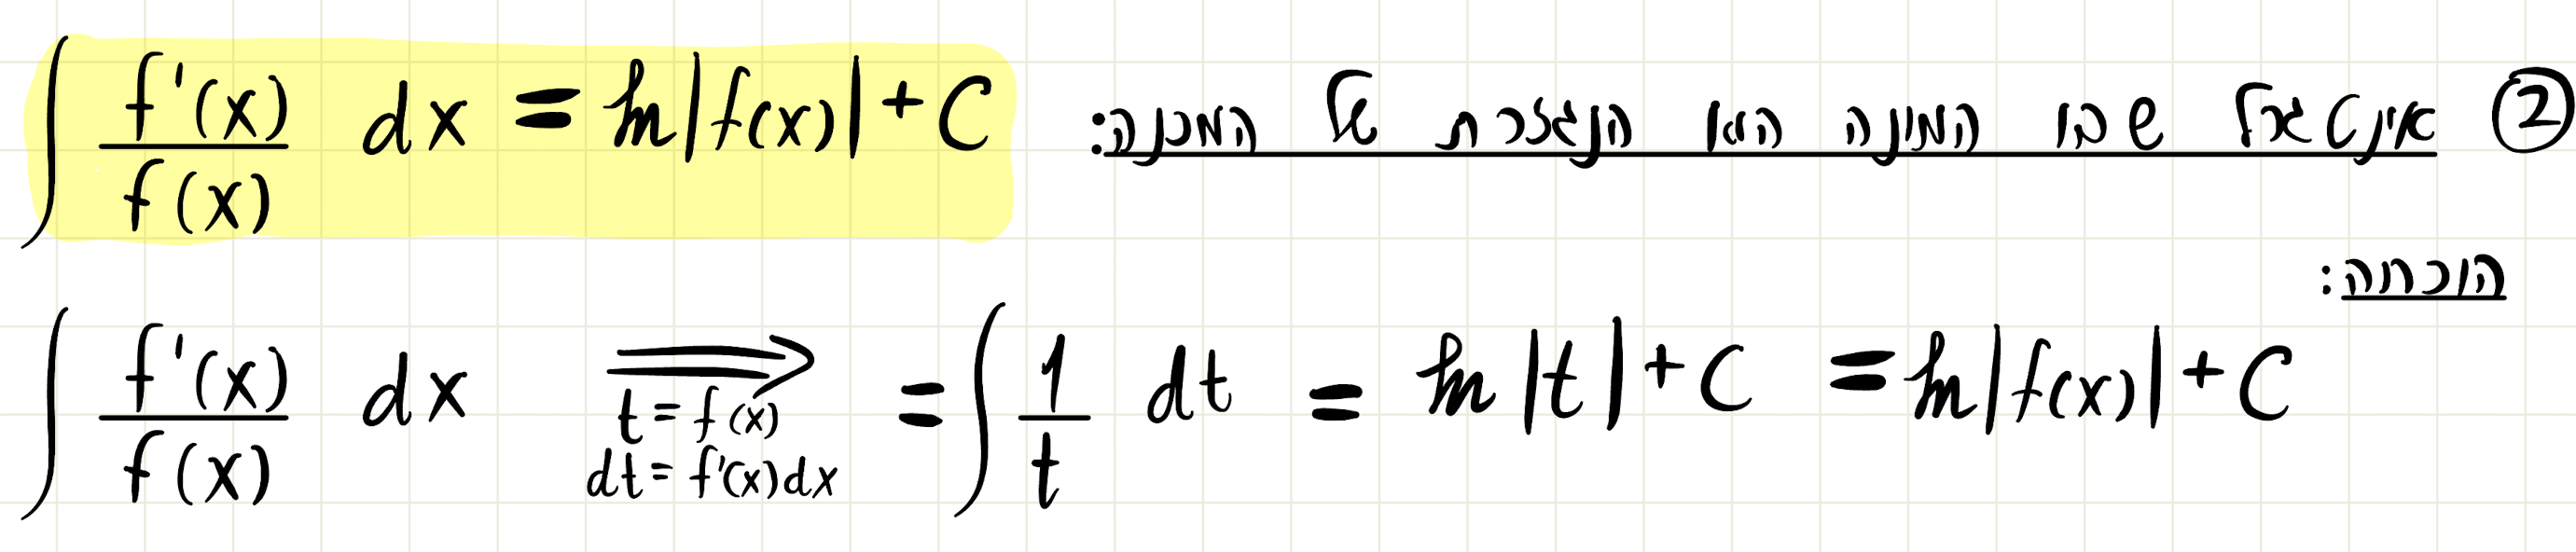 ② אינטגרל שבו המונה הוא הנגזרת של המכנה: ∫ f'(x)/f(x) dx = ln|f(x)| + C
הוכחה:
∫ f'(x)/f(x) dx ⟹ t = f(x) dt = f'(x)dx = ∫ 1/t dt = ln|t| + C = ln|f(x)| + C